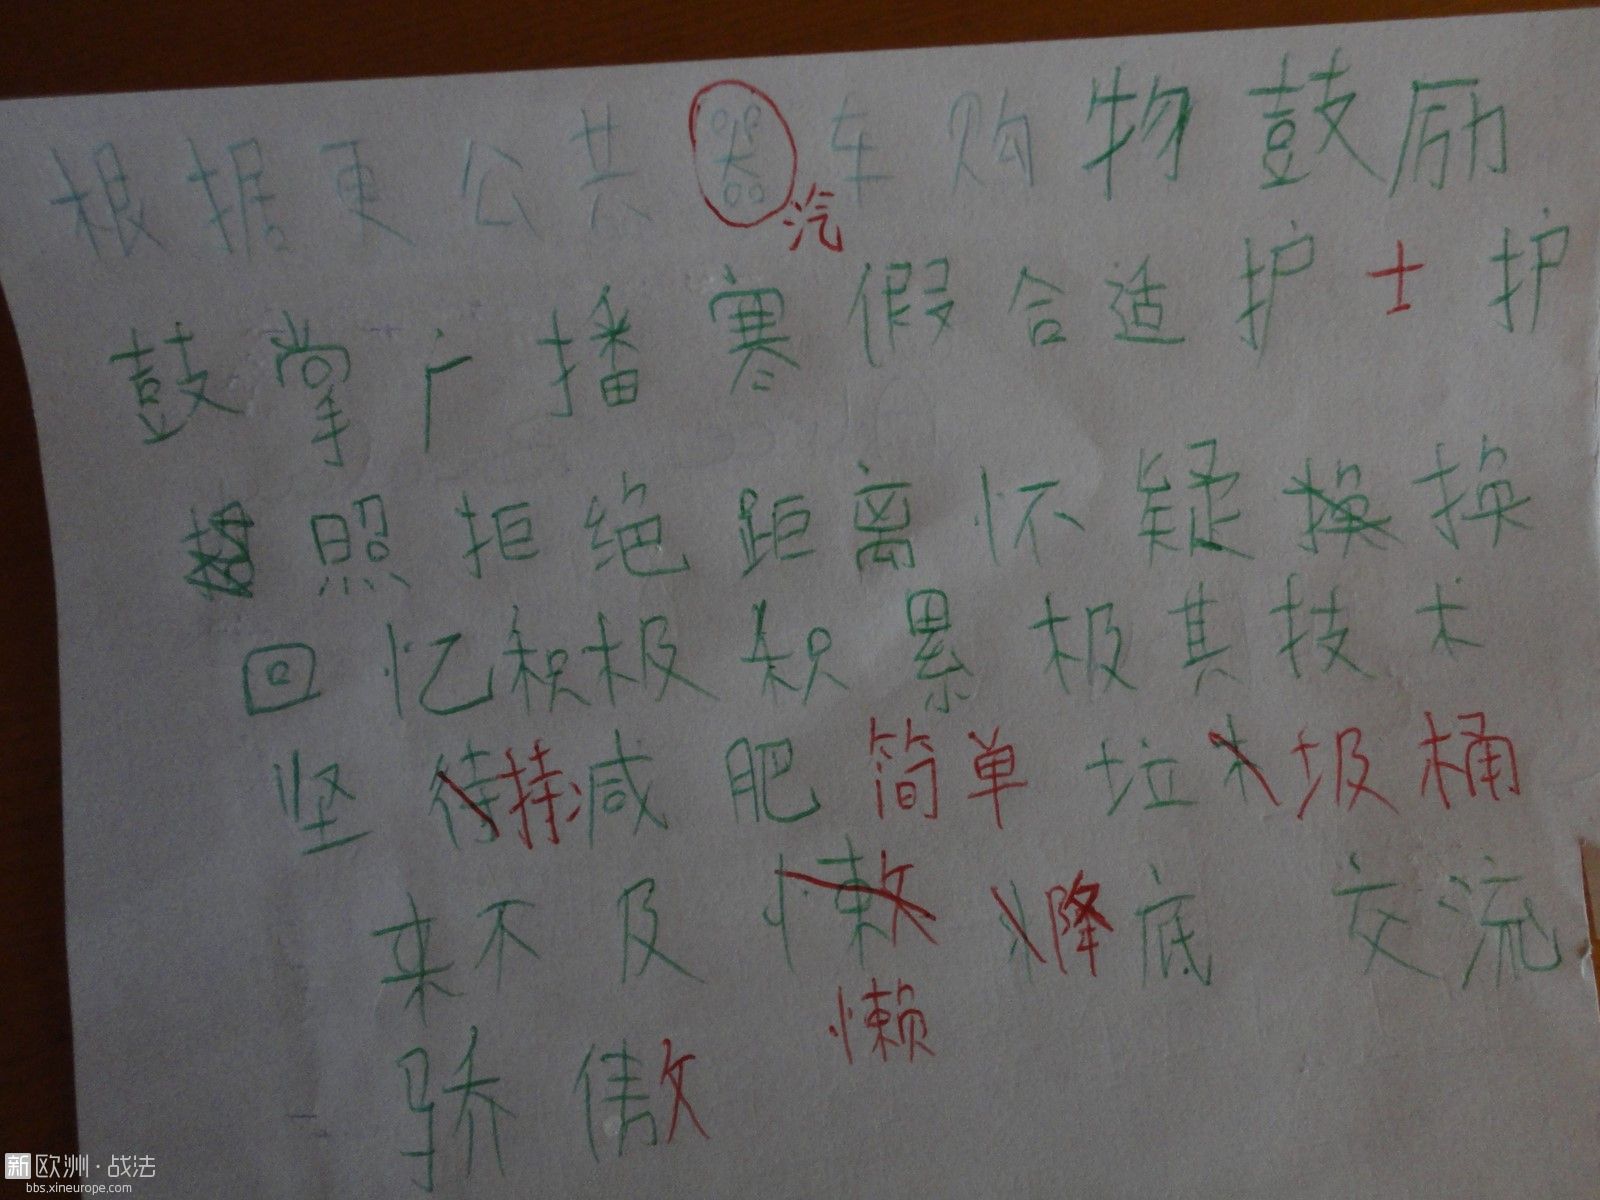 根据更公共器车购物鼓励
汽
鼓掌广播寒假合适护士护
照拒绝距离怀疑换换
回忆积极积累极其技术
坚待持减肥简单垃圾桶
来不及懒降底交流
懒
骄傲
新欧洲·战法
bbs.xineurope.com